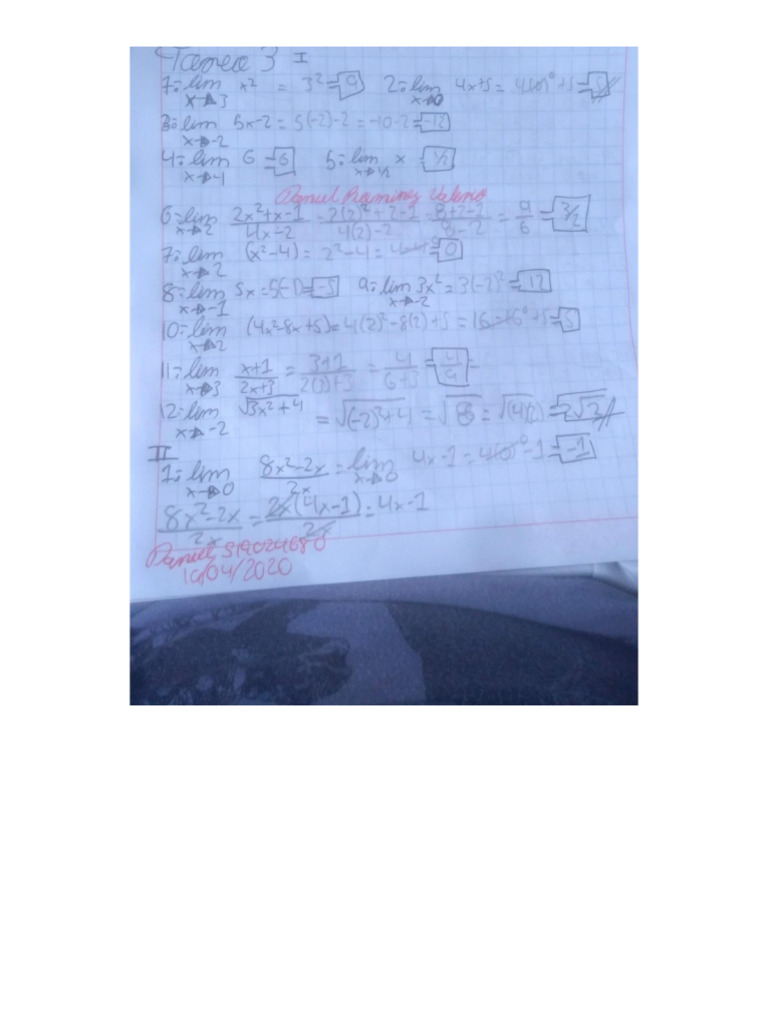 Tarea 3 I
1:- lim x→3 x² = 3² = 9 2:- lim x→0 4x+5 = 4(0)⁰+5 = 5
3:- lim x→-2 5x-2 = 5(-2)-2 = -10-2 = -12
4:- lim x→4 6 = 6 5:- lim x→1/2 x = 1/2
Daniel Ramirez
6:- lim x→2 (2x²+x-1)/(4x-2) = (2(2)²+2-1)/(4(2)-2) = (8+2-1)/(8-2) = 9/6 = 3/2
7:- lim x→2 (x²-4) = 2²-4 = 4-4 = 0
8:- lim x→-1 5x = 5(-1) = -5 9:- lim x→-2 3x² = 3(-2)² = 12
10:- lim x→2 (4x²-8x+5) = 4(2)²-8(2)+5 = 16-16⁰+5 = 5
11:- lim x→3 (x+1)/(2x+3) = (3+1)/(2(3)+3) = 4/(6+3) = 4/9
12:- lim x→-2 √3x²+4 = √(-2)²+4 = √8 = √(4)(2) = 2√2
II
1:- lim x→0 (8x²-2x)/2x = lim x→0 4x-1 = 4(0)⁰-1 = -1
(8x²-2x)/2x = 2x(4x-1)/2x = 4x-1
Daniel
/04/2020